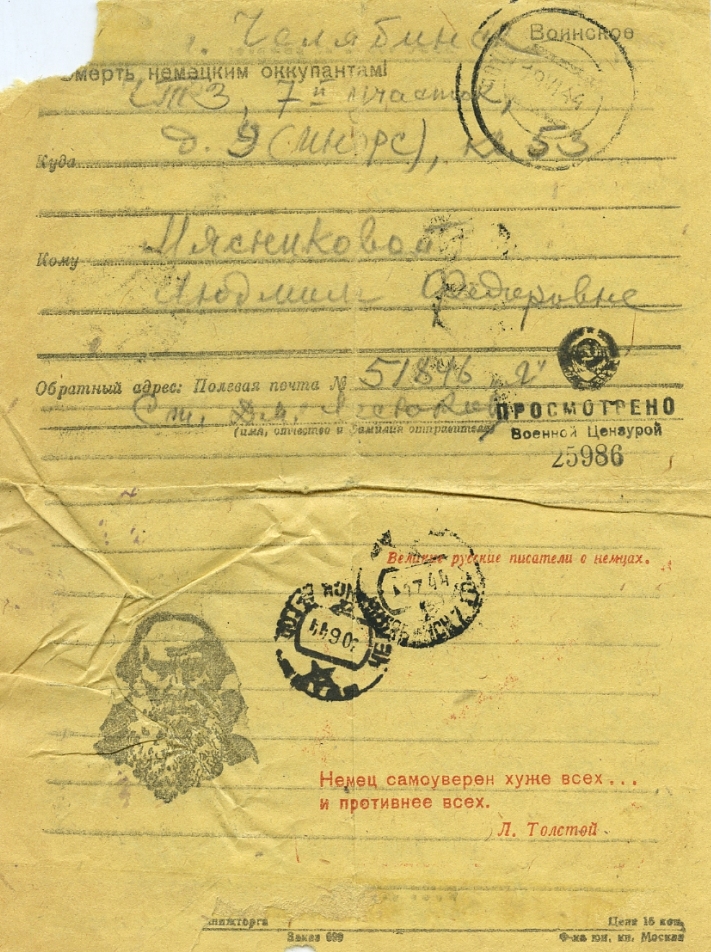 г. Челябинск
Воинское
Смерть немецким оккупантам!
ЧТЗ, 7й участок,
Куда
д. 9 (ИНОРС), кв. 53
Кому
Мясниковой
Людмиле Федоровне
Обратный адрес: Полевая почта № 51846 „Я"
(имя, отчество и фамилия отправителя)
ПРОСМОТРЕНО
Военной Цензурой
25986
Великие русские писатели о немцах.
Немец самоуверен хуже всех...
и противнее всех.
Л. Толстой
Заказ 699
Цена 15 коп.
Ф-ка юн. кн. Москва